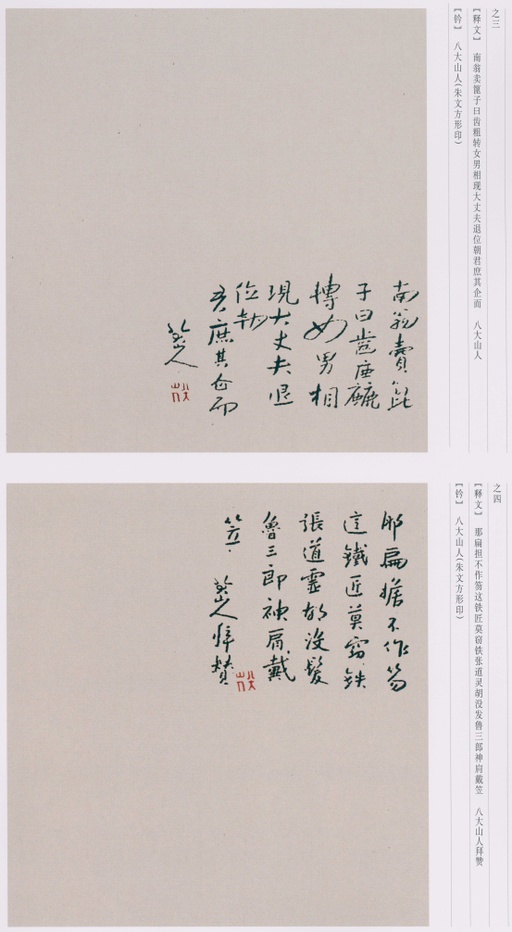 之三
【释文】 南翁卖篦子曰齿粗转女男相现大丈夫退位朝君庶其企而 八大山人
【钤】 八大山人(朱文方形印)
南翁賣篦
子曰齒麤
轉女男相
現大丈夫退
位朝
君庶其企而
八大山人
之四
【释文】 那扁担不作笏这铁匠莫窃铁张道灵胡没发鲁三郎神肩戴笠 八大山人拜赞
【钤】 八大山人(朱文方形印)
那扁擔不作笏
這鐵匠莫竊鉄
張道靈胡沒髮
魯三郎神肩戴
笠 八大山人拜贊